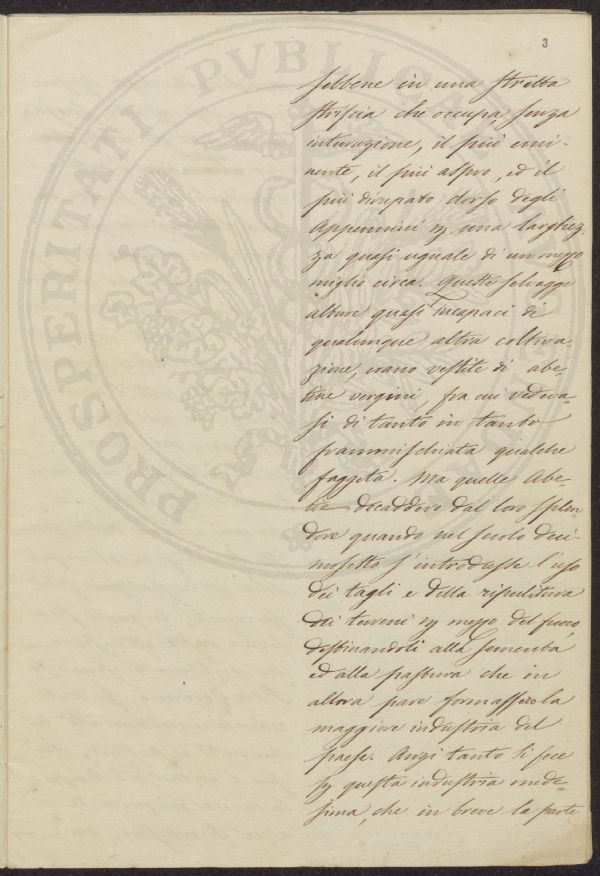 3
PROSPERITATI PVBLICAE
sebbene in una stretta
striscia che occupa, senza
interuzione, il più emi-
nente, il più aspro, ed il
più dirupato dorso degli
Appennini per una larghez-
za quasi uguale di un mezzo
miglio circa. Quelle selvagge
alture quasi incapaci di
qualunque altra coltiva-
zione, erano vestite di abe-
tine vergini, fra cui vedeva-
si di tanto in tanto
frammischiata qualche
faggeta. Ma quelle Abe-
tie decaddero dal loro splen-
dore quando nel secolo deci-
mosetto s'introdusse l'uso
dei tagli e della ripulitura
dei terreni per mezzo del fuoco,
destinandoli alla sementa
ed alla pastura che in
allora pare formassero la
maggiore industria del
paese. Anzi tanto si fece
per questa industria mede-
sima, che in breve la parte